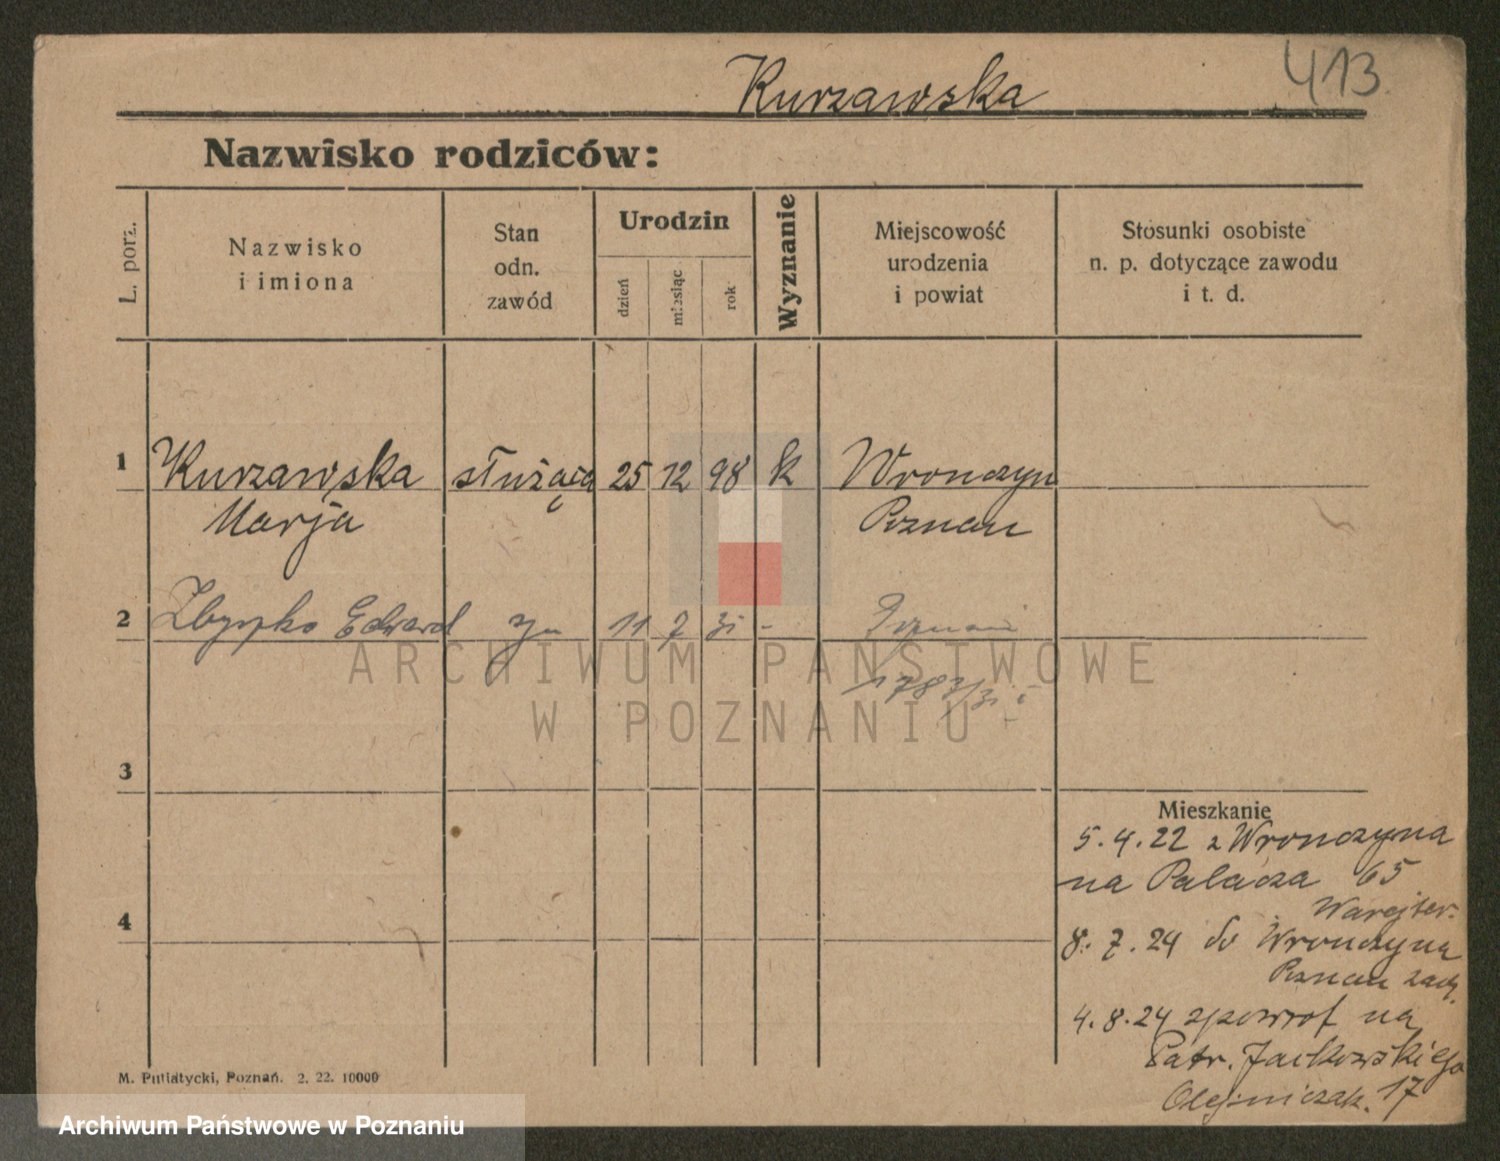 Kurzawska
413.
Nazwisko rodziców:
L. porz.
Nazwisko
i imiona
Stan
odn.
zawód
Urodzin
dzień
miesiąc
rok
Wyznanie
Miejscowość
urodzenia
i powiat
Stosunki osobiste
n. p. dotyczące zawodu
i t. d.
1 Kurzawska służąca 25 12 98 k Wronczyn
Marja Poznań
2 Zbyszko Edward syn 11 7 31 - Poznań
1783/31
ARCHIWUM PAŃSTWOWE
W POZNANIU
3
Mieszkanie
5.4.22 z Wronczyna
na Palacza 65
4
8.7.24 do Wronczyna
Poznań zach.
4.8.24 zpowrot na
Patr. Jackowskiego
Olejniczak. 17
M. Putiatycki, Poznań. 2. 22. 10000
Archiwum Państwowe w Poznaniu